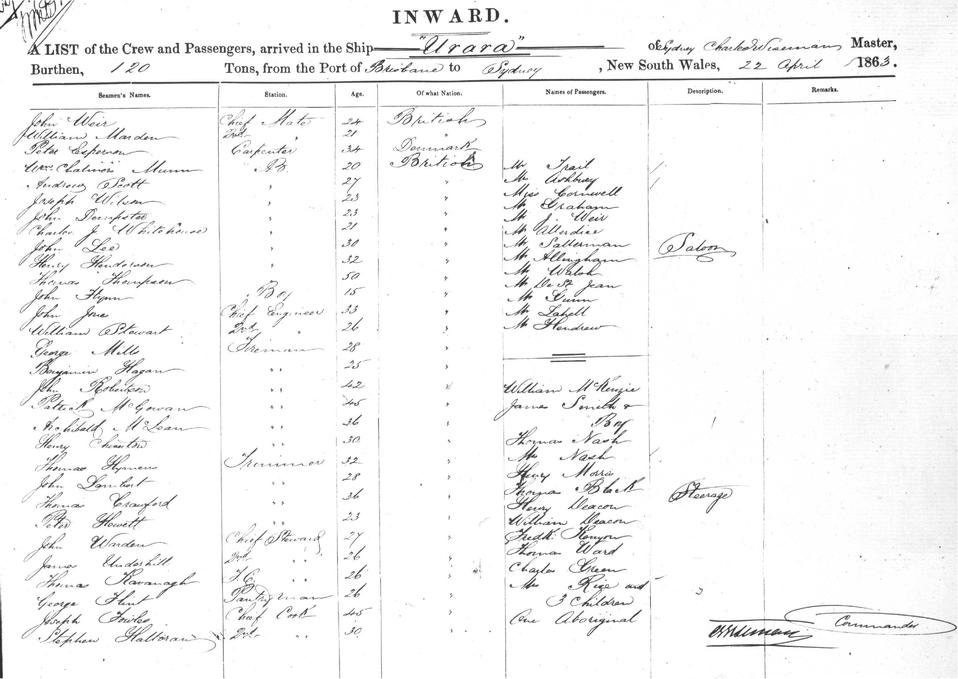 INWARD.
A LIST of the Crew and Passengers, arrived in the Ship "Urara" of Sydney Charles Wiseman Master,
Burthen, 120 Tons, from the Port of Brisbane to Sydney, New South Wales, 22 April 1863.
Seamen's Names. Station. Age. Of what Nation. Names of Passengers. Description. Remarks.
John Weir Chief Mate 24 British
William Marden 2nd " 21 "
Peter Esperson Carpenter 34 Denmark
Wm Chalmers Munn AB 20 British Mr Trail
Andrew Scott " 27 " Mr Ashbury
Joseph Wilson " 23 " Miss Cornwell
John Dempster " 23 " Mr Graham
Charles J Whitehouse " 21 " Mr J. Weir
John Lee " 30 " Mr Salterman Saloon
Henry Henderson " 32 " Mr Allingham
Thomas Thompson " 50 " Mr Walsh
John Flynn Boy 15 " Mr De St Jean
John Chief Engineer 33 " Mr Gunn
William Stewart 2nd " 26 " Mr
George Mills Fireman 28 " Mr
Benjamin Hagan " 25 "
John Robertson " 42 " William McKenzie
Patrick McGowan " 45 " James Smith &
Archibald McLean " 36 " Boy
Henry " 30 " Thomas Nash
Thomas Hymens Trimmer 32 " Mrs Nash
John Lambert " 28 " Henry Morris
Thomas Crawford " 36 " Thomas Black Steerage
Peter Howett " 23 " Henry Deacon
John Warden Chief Steward 27 " William Deacon
James Underhill 2nd " 26 " Fredk. Kenyon
Thomas Kavanagh F.C. " 26 " Thomas Ward
George Flint Pantryman 26 " Charles Green
Joseph Fowles Chief Cook 45 " Mrs Rice and
Stephen Halloran 2nd " 30 " 3 Children
One Aboriginal
CWiseman Commander